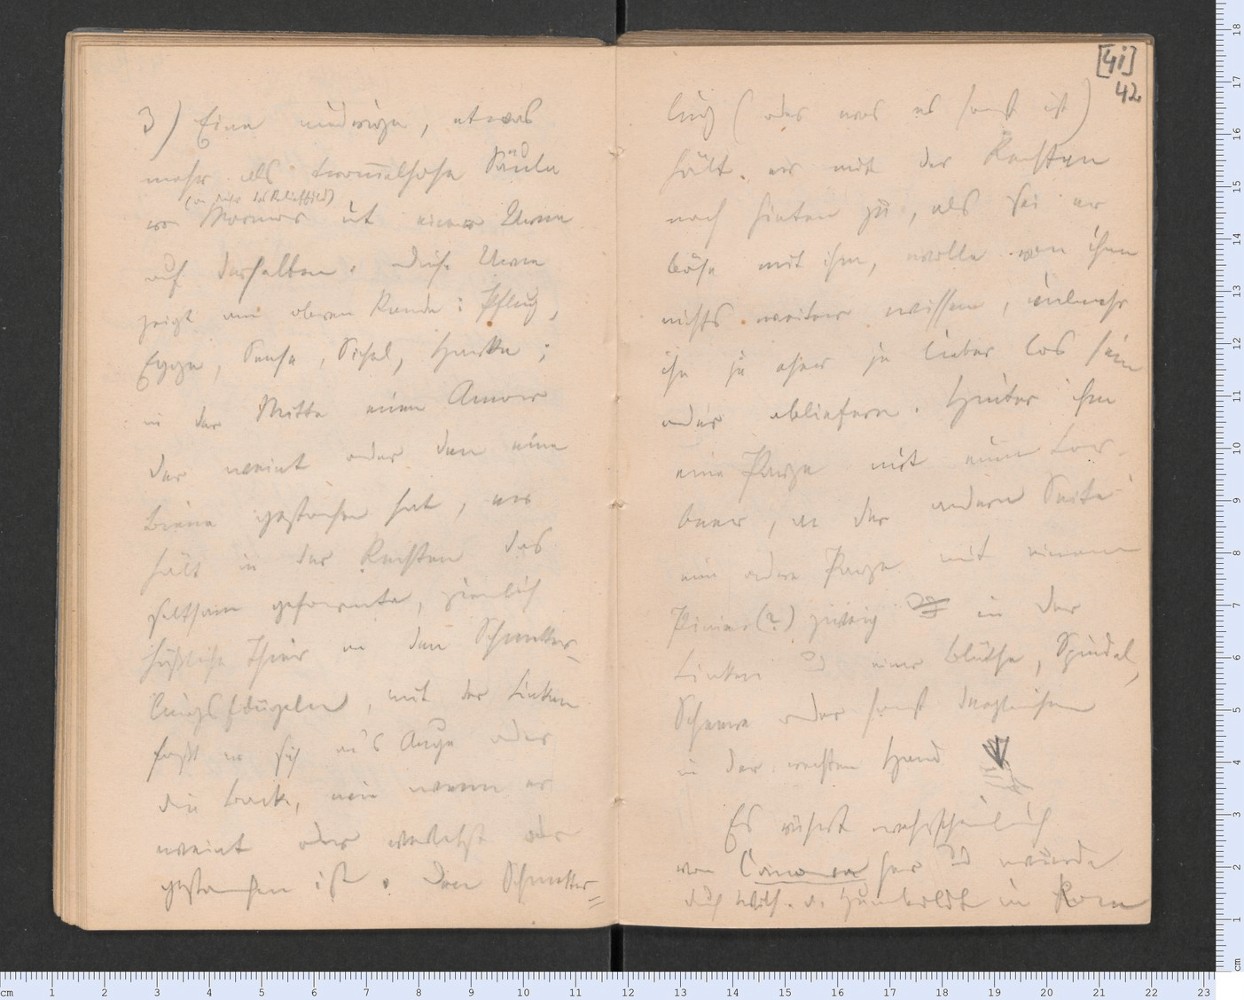 3) Eine niedrige, etwas
mehr als trommelhohe Säule
(in Mitte des Reliefbild)
von Marmor ist eine Urne
auf derselben. Diese Urne
zeigt am obern Rande: Pflug,
Egge, Sense, Sichel, Harke;
in der Mitte einen Amor
der weint oder den eine
Biene gestochen hat, er
hält in der Rechten das
seltsam geformte, ziemlich
häßliche Thier an den Schmetter-
lingsflügeln, mit der Linken
faßt er sich an's Auge oder
die Backe, wie wenn er
weint oder verletzt oder
gestochen ist. Den Schmetter-
[41]
42
ling (oder was es sonst ist)
hält er mit der Rechten
nach hinten zu, als sei er
böse mit ihm, wolle von ihm
nichts weiter wissen, vielmehr
ihn je eher je lieber los sein
oder abliefern. Hinter ihm
eine Parze mit einem Lor-
beer, an der andern Seite
eine andre Parze mit einem
Pinien(?)zweig in der
Linken und einer Blüthe, Spindel,
Scheere oder sonst dergleichen
in der rechten Hand
Es rührt wahrscheinlich
von Canova her und wurde
durch Wilh. v. Humboldt in Rom